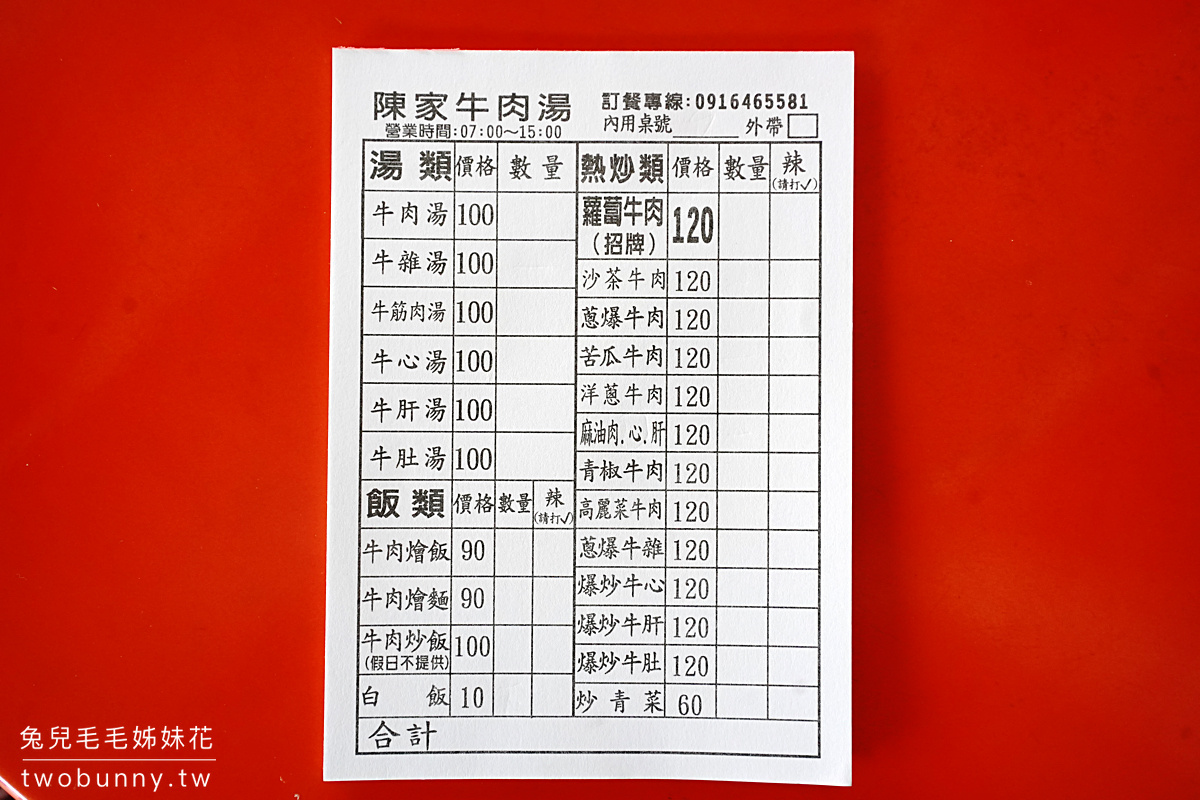 陳家牛肉湯
營業時間:07:00~15:00
訂餐專線:0916465581
內用桌號______ 外帶
湯類 價格 數量
牛肉湯 100
牛雜湯 100
牛筋肉湯 100
牛心湯 100
牛肝湯 100
牛肚湯 100
飯類 價格 數量 辣
(請打✓)
牛肉燴飯 90
牛肉燴麵 90
牛肉炒飯 100
(假日不提供)
白飯 10
熱炒類 價格 數量 辣
(請打✓)
蘿蔔牛肉 120
(招牌)
沙茶牛肉 120
蔥爆牛肉 120
苦瓜牛肉 120
洋蔥牛肉 120
麻油肉.心.肝 120
青椒牛肉 120
高麗菜牛肉 120
蔥爆牛雜 120
爆炒牛心 120
爆炒牛肝 120
爆炒牛肚 120
炒青菜 60
合計
兔兒毛毛姊妹花
twobunny.tw